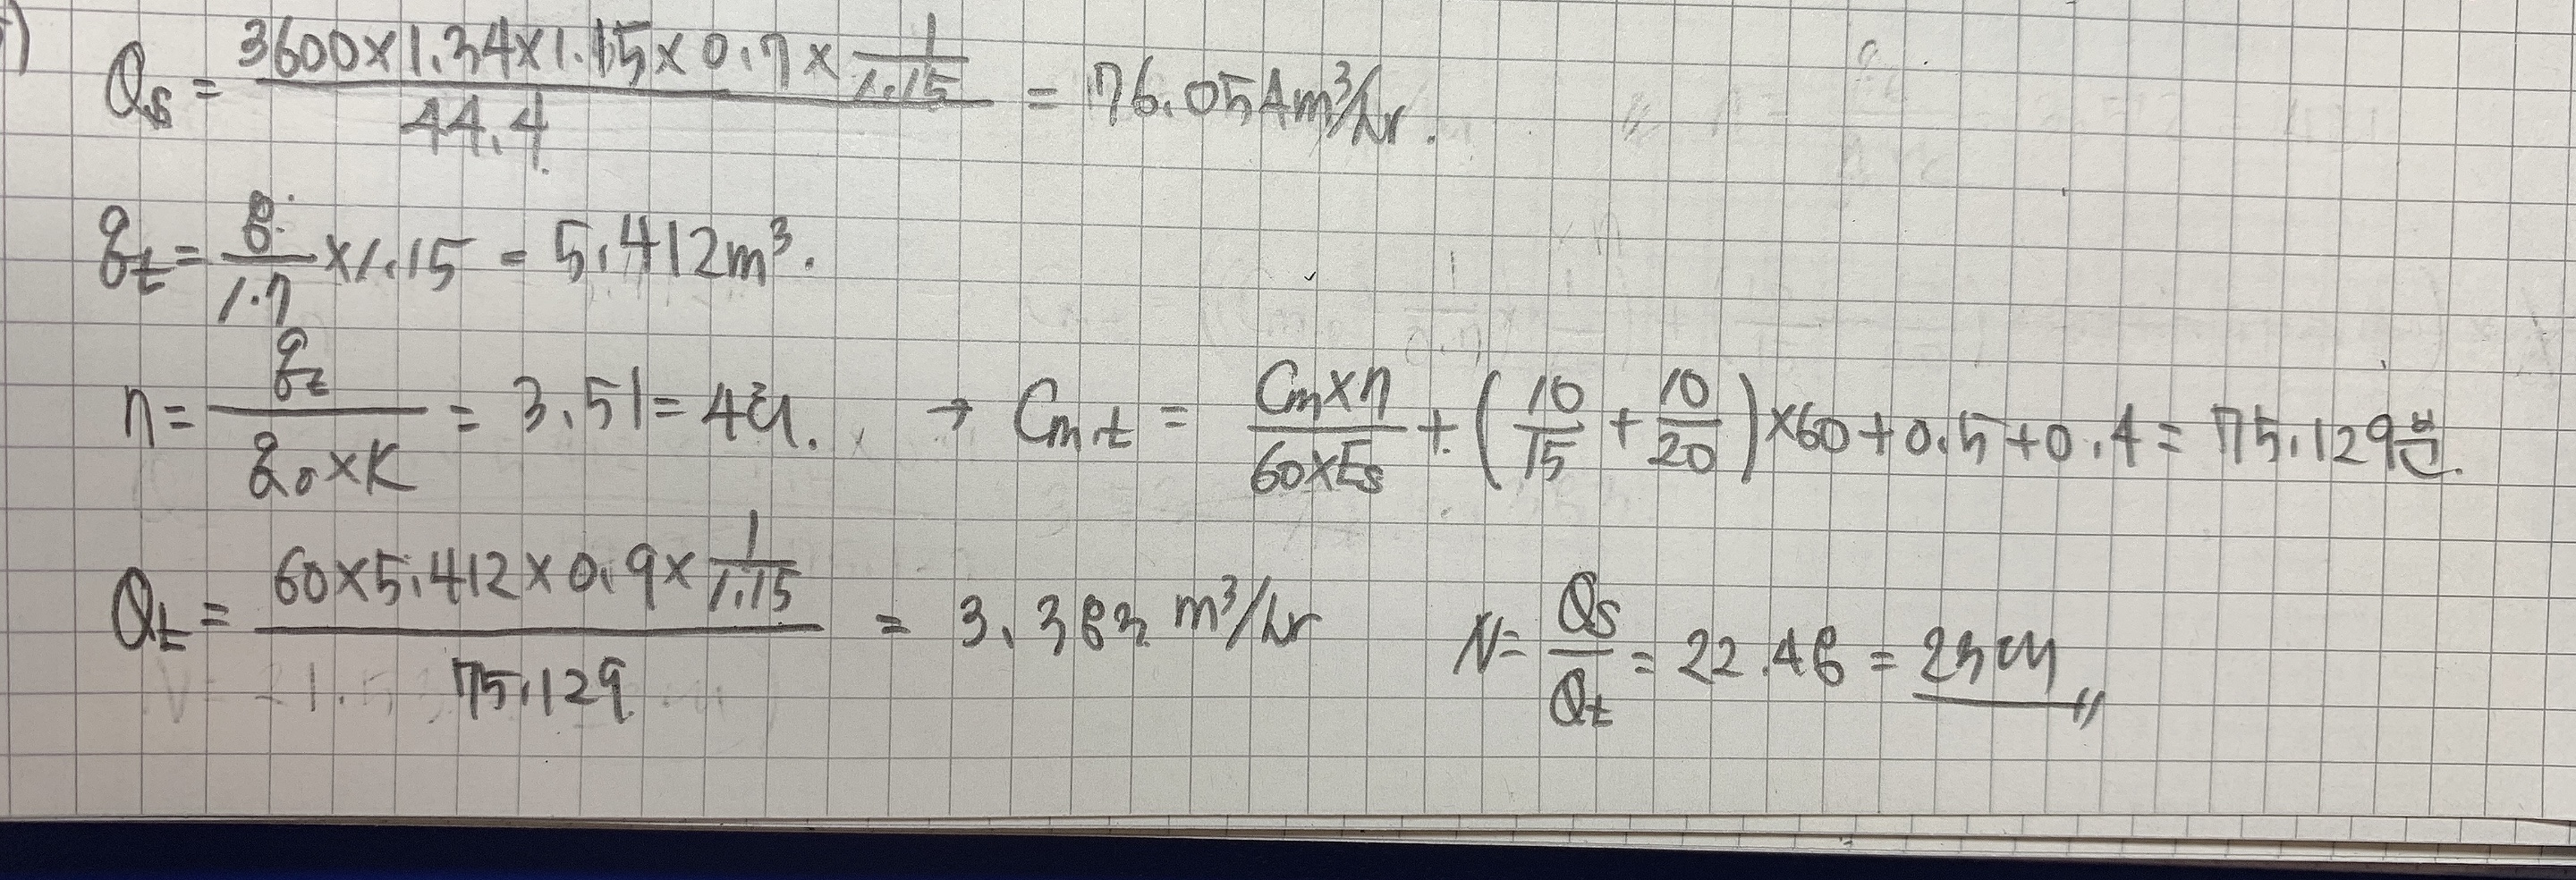 Qs = (3600×1.34×1.15×0.7×1/1.15)/44.4 = 76.054m³/hr.
qt = 8/1.7 ×1.15 = 5.412m³.
n = qt/(q0×K) = 3.51 = 4회. → Cm.t = (Cm×n)/(60×Es) + (10/15 + 10/20)×60+0.5+0.4 = 75.129분.
Qt = (60×5.412×0.9×1/1.15)/75.129 = 3.383 m³/hr N = Qs/Qt = 22.48 = 23대 〃